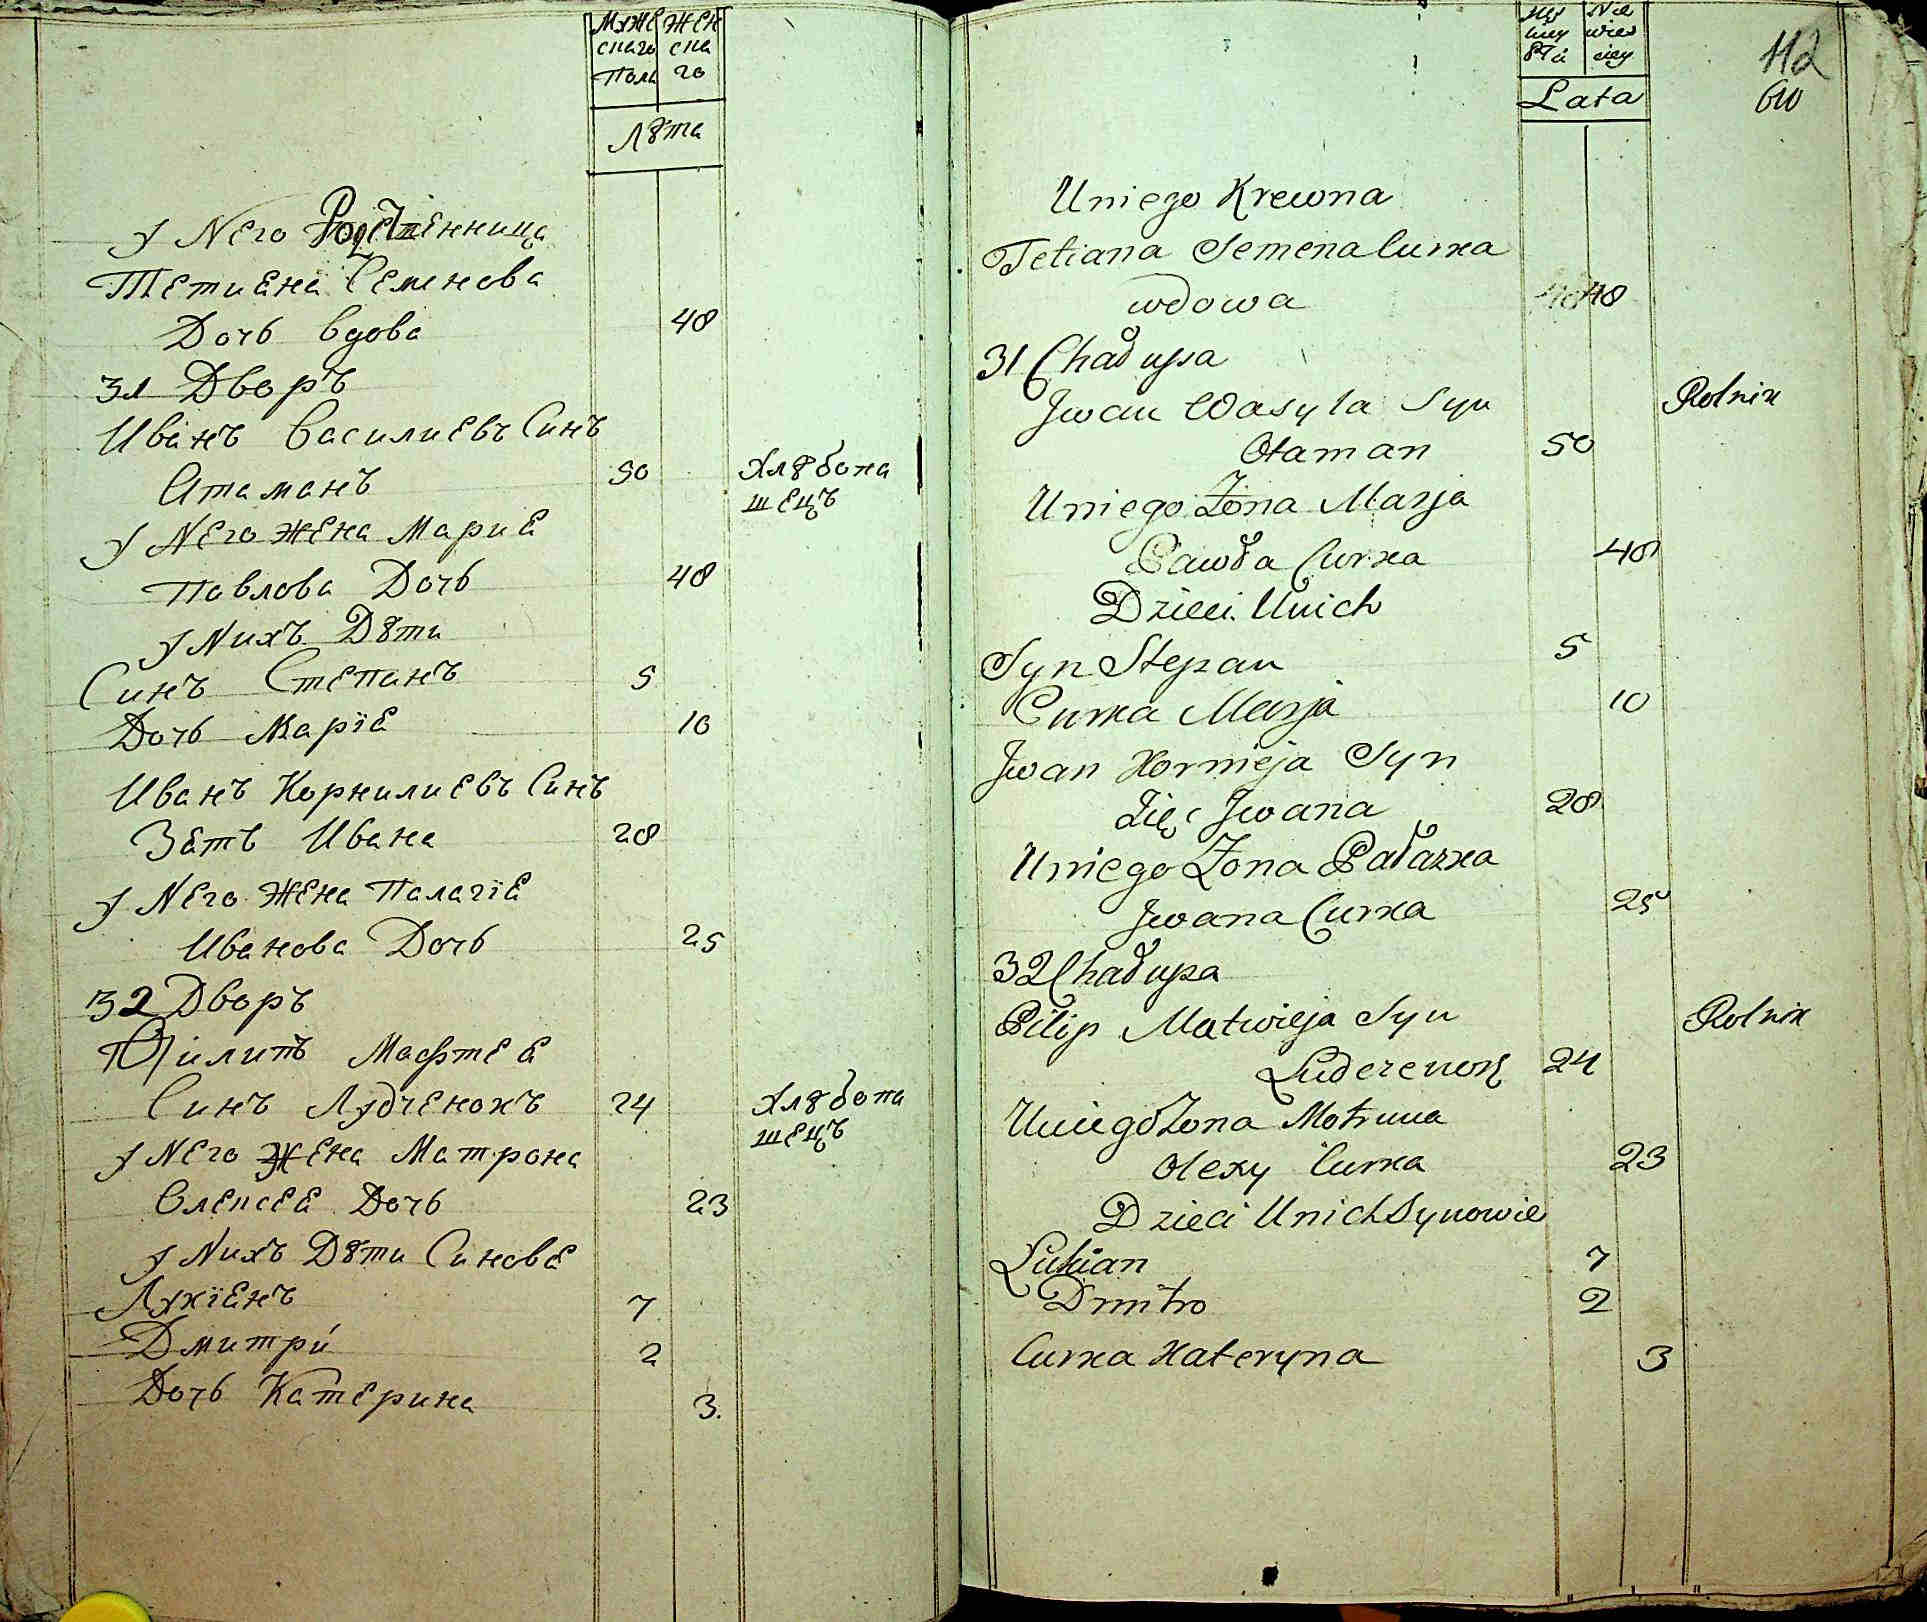 Муже Жен
скаго ска
Пола го
Лѣта
У Него Родственница
Тетиана Семенова
Дочь вдова 48
31 Дворъ
Иванъ Василиевъ Синъ
Атаманъ 50 Хлѣбопа
шецъ
У Него Жена Мариа
Павлова Дочь 48
У Нихъ Дѣти
Синъ Степанъ 5
Дочь Маріа 10
Иванъ Корнилиевъ Синъ
Зать Ивана 28
У Него Жена Палагіа
Иванова Дочь 25
32 Дворъ
Пилипъ Мафтеа
Синъ Лудченокъ 24 Хлѣбопа
шецъ
У Него Жена Матрона
Олексеа Дочь 23
У Нихъ Дѣти Синовѣ
Лукіанъ 7
Дмитри 2
Дочь Катерина 3.
Lata
112
60
Uniego Krewna
Tetiana Semena Curka
wdowa 48
31 Chałupa
Jwan Wasyla Syn Rolnik
Otaman 50
Uniego Zona Marja
Pawła Curka 48
Dzieci Unich
Syn Stepan 5
Curka Marja 10
Jwan Kornieja Syn
Zięc Jwana 28
Uniego Zona Pałazka
Jwana Curka 25
32 Chałupa
Pilip Matwieja Syn Rolnik
Ludczenok 24
Uniego Zona Motruna
Olexy Curka 23
Dzieci Unich Synowie
Lukian 7
Dmitro 2
Curka Kateryna 3